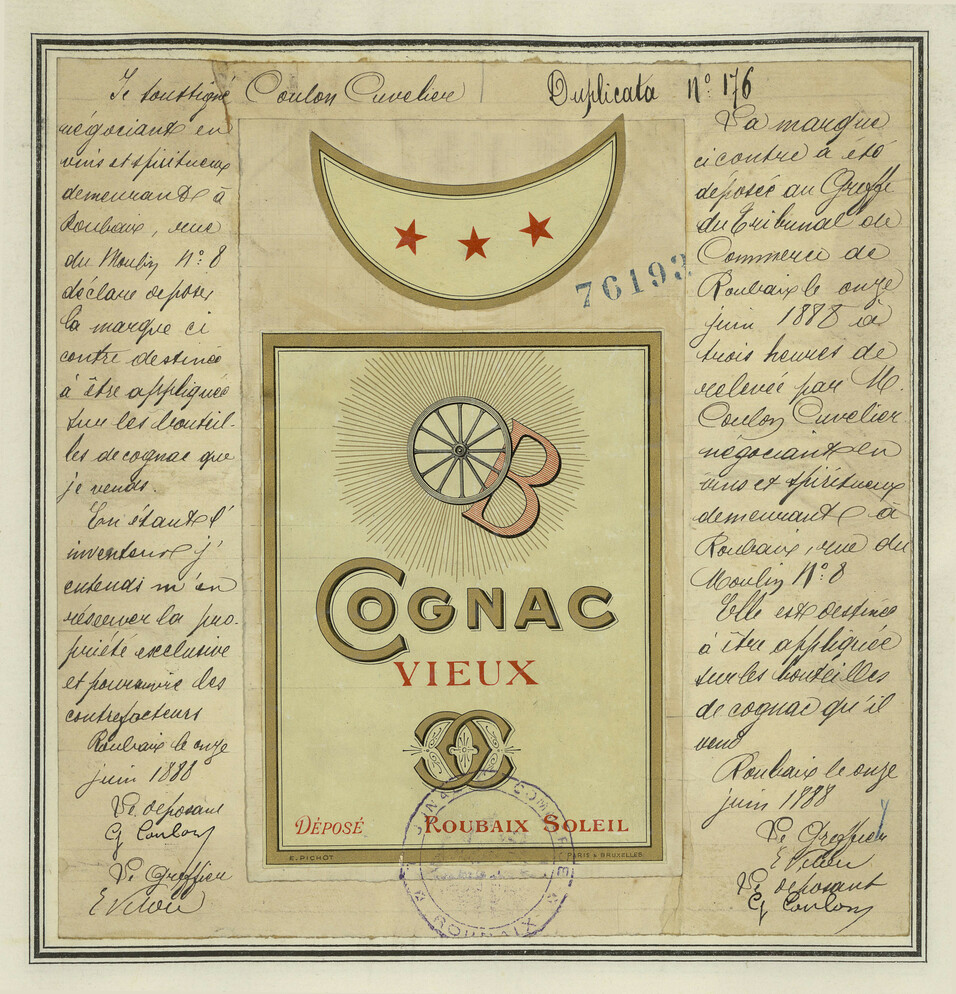 Je soussigné Coulon Cuvelier
négociant en
vins et spiritueux
demeurant à
Roubaix, rue
du Moulin N° 8
déclare déposer
la marque ci
contre destinée
à être appliquée
sur les bouteil-
les de cognac que
je vends.
En étant l'
inventeur j'
entends m'en
réserver la pro-
priété exclusive
et poursuivre les
contrefacteurs
Roubaix le onze
juin 1888
Le déposant
Le Greffier
Duplicata N° 176
76193
COGNAC
VIEUX
DÉPOSÉ ROUBAIX SOLEIL
E. PICHOT PARIS & BRUXELLES
ROUBAIX
La marque
ci contre a été
déposée au Greffe
du Tribunal de
Commerce de
Roubaix le onze
juin 1888 à
trois heures de
relevée par M.
Coulon Cuvelier
négociant en
vins et spiritueux
demeurant à
Roubaix, rue du
Moulin N° 8
Elle est destinée
à être appliquée
sur les bouteilles
de cognac qu'il
vend
Roubaix le onze
juin 1888
Le Greffier
Le déposant